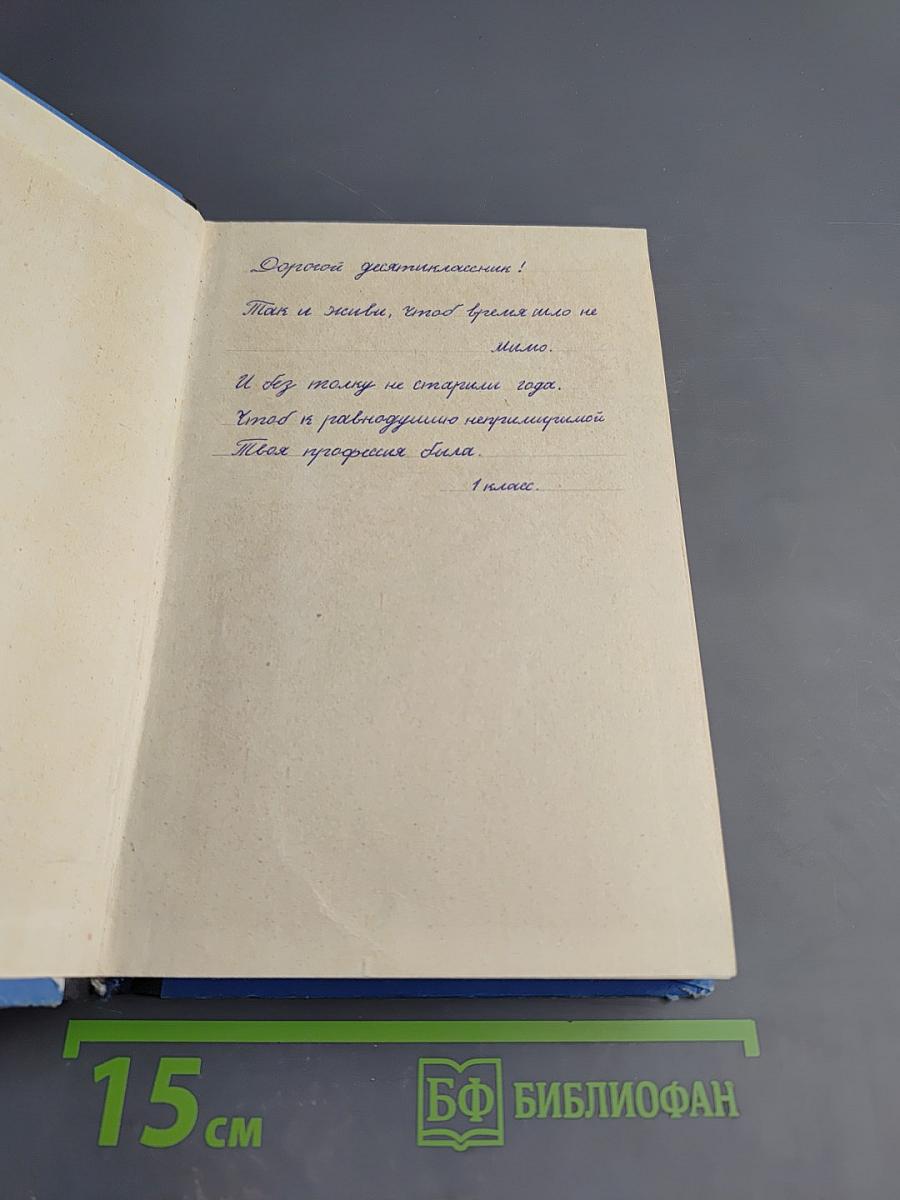 Дорогой десятиклассник!
Так и живи, чтоб время шло не
мимо.
И без толку не старили года.
Чтоб к равнодушию непримиримой
Твоя профессия была.
1 класс.
15 см
БФ БИБЛИОФАН